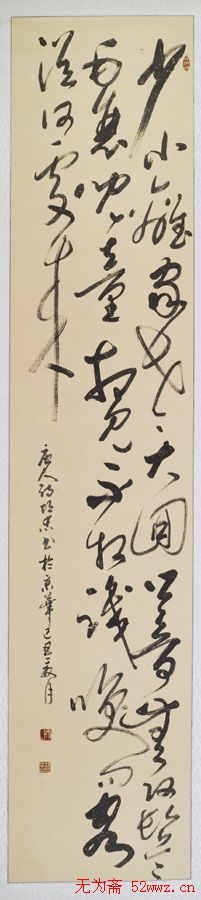 少小離家老大回鄉音無改鬢
毛衰兒童相見不相識咲問客
從何處來
唐人詩書於京華己丑夏月
无为斋 52wwz.cn